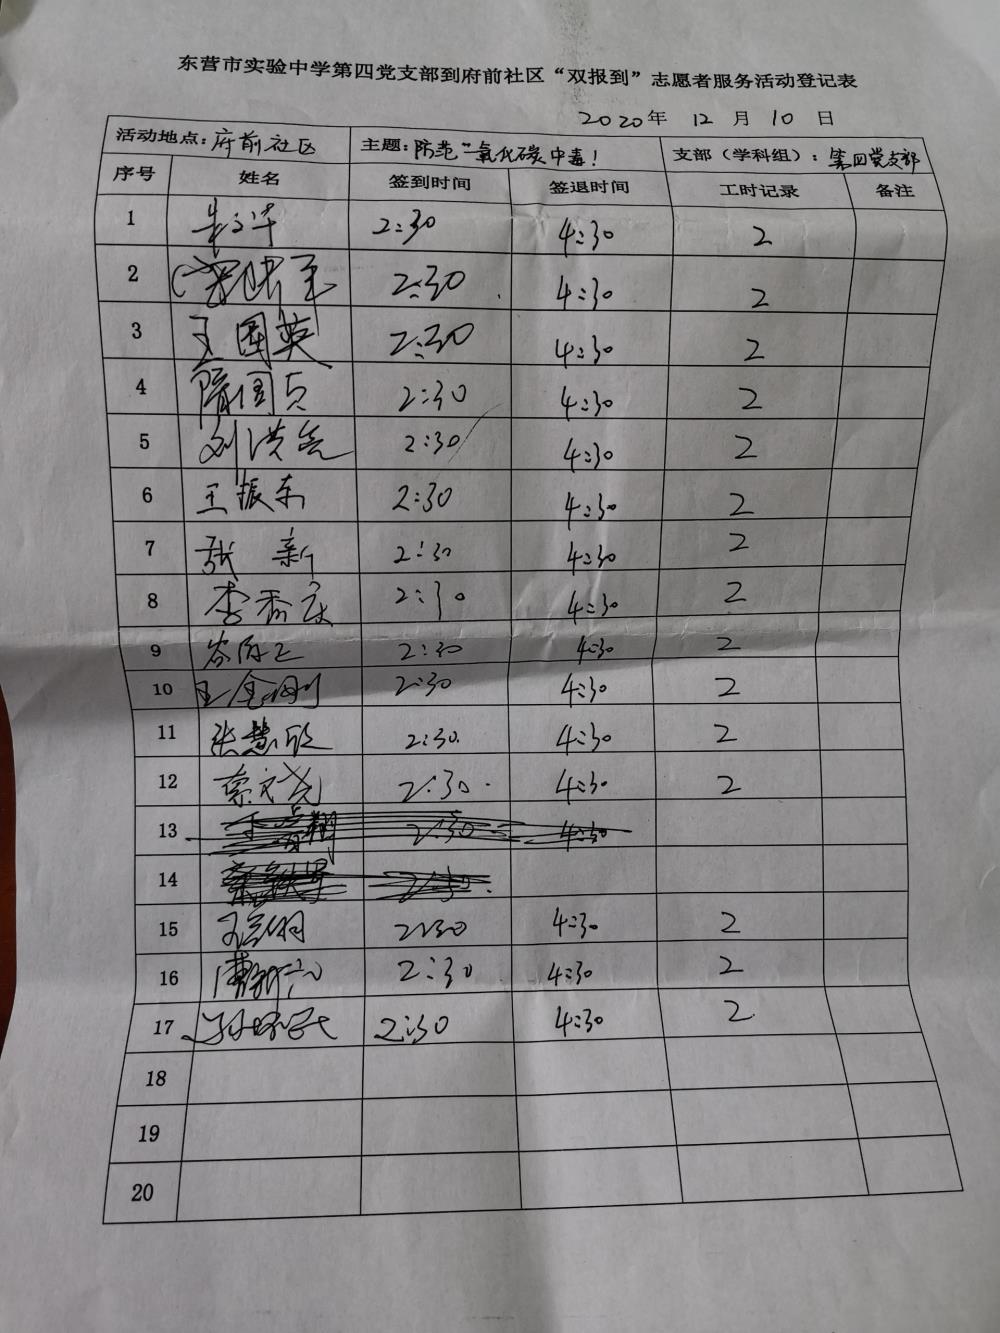 东营市实验中学第四党支部到府前社区“双报到”志愿者服务活动登记表
2020年 12 月 10 日
活动地点：府前社区 主题：防范一氧化碳中毒！ 支部（学科组）：第四党支部
序号 姓名 签到时间 签退时间 工时记录 备注
1 2:30 4:30 2
2 2:30 4:30 2
3 王国英 2:30 4:30 2
4 隋国贞 2:30 4:30 2
5 2:30 4:30 2
6 王振东 2:30 4:30 2
7 张新 2:30 4:30 2
8 李香庆 2:30 4:30 2
9 2:30 4:30 2
10 王金刚 2:30 4:30 2
11 张慧欣 2:30 4:30 2
12 2:30 4:30 2
13 2:30 4:30
14 2:30
15 2:30 4:30 2
16 2:30 4:30 2
17 2:30 4:30 2
18
19
20